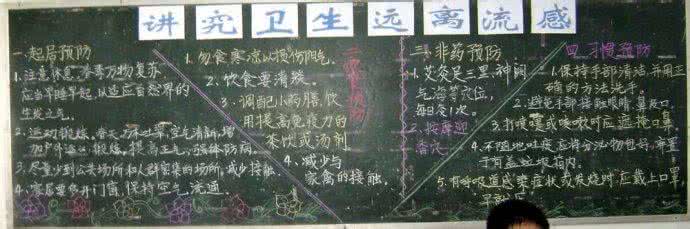 讲究卫生远离流感
一.起居预防
1.注意休息,春季万物复苏
应当早睡早起,以适应自然界的
生发之气。
2.运动锻炼,春天万木吐翠,空气清新,增
加户外运动锻炼,提高正气,强体防病。
3.尽量少到公共场所和人群密集的场所,减少接触。
4.家居要多开门窗,保持空气流通
1.勿食寒凉以损伤阳气
2.饮食要清淡
3.调配小药膳,饮
用提高免疫力的
茶饮或汤剂
4.减少与
家禽的接触。
二.饮食预防
三.非药预防
1.艾灸足三里,神阙
气海等穴位,
每日灸1次。
2.按摩迎
香穴。
四.习惯预防
1.保持手部清洁,并用正
确的方法洗手。
2.避免手部接触眼睛,鼻及口。
3.打喷嚏或咳嗽时应掩口鼻。
4.不随地吐痰,应将分泌物包好,弃置
于有盖垃圾箱内。
5.有呼吸道感染症状或发烧时,应戴上口罩,